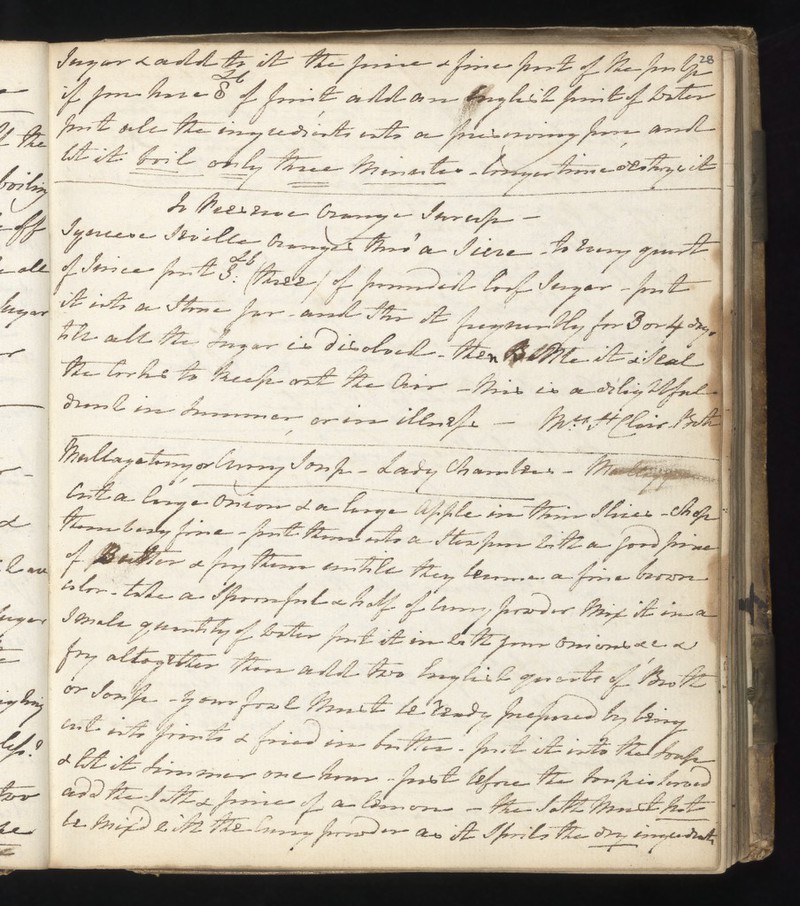 28
Sugar & add to it the juice & fine part of the pulp
if you have 8 lb of fruit add an English pint of Water
put all the ingredients into a preserving pan, and
let it boil only three Minutes - longer time destroys it
To Preserve Orange Juice -
Squeese Seville Oranges thro' a Sieve - to every quart
of Juice put 3 lb: (three) of pounded loaf Sugar - put
it into a Stone Jar - and Stir it frequently for 3 or 4 days
till all the Sugar is disolved - then Bottle it & Seal
the Corks to keep out the Air - this is a delightful
drink in Summer, or in illness - Mrs. St Clair Bath
Mullagatawny or Curry Soup - Lady Chambers -
Cut a large onion & a large Apple in thin Slices - chop
them very fine - put them into a Stewpan with a good piece
of Butter & fry them untill they become a fine brown
color - take a Spoonful & half of Curry powder Mix it in a
Small quantity of Water put it in with your onions &c &
fry altogether then add two English quarts of Broth
or Soup - your fowl Must be ready prepared by being
cut into joints & fried in butter - put it into the Soup
& let it Simmer one hour - just before the Soup is served
add the Salt & juice of a lemon - the Salt Must not
be Mix'd with the Curry powder as it Spoils the dry ingredients
the
boiling
off
all
Sugar
&
Sugar
two